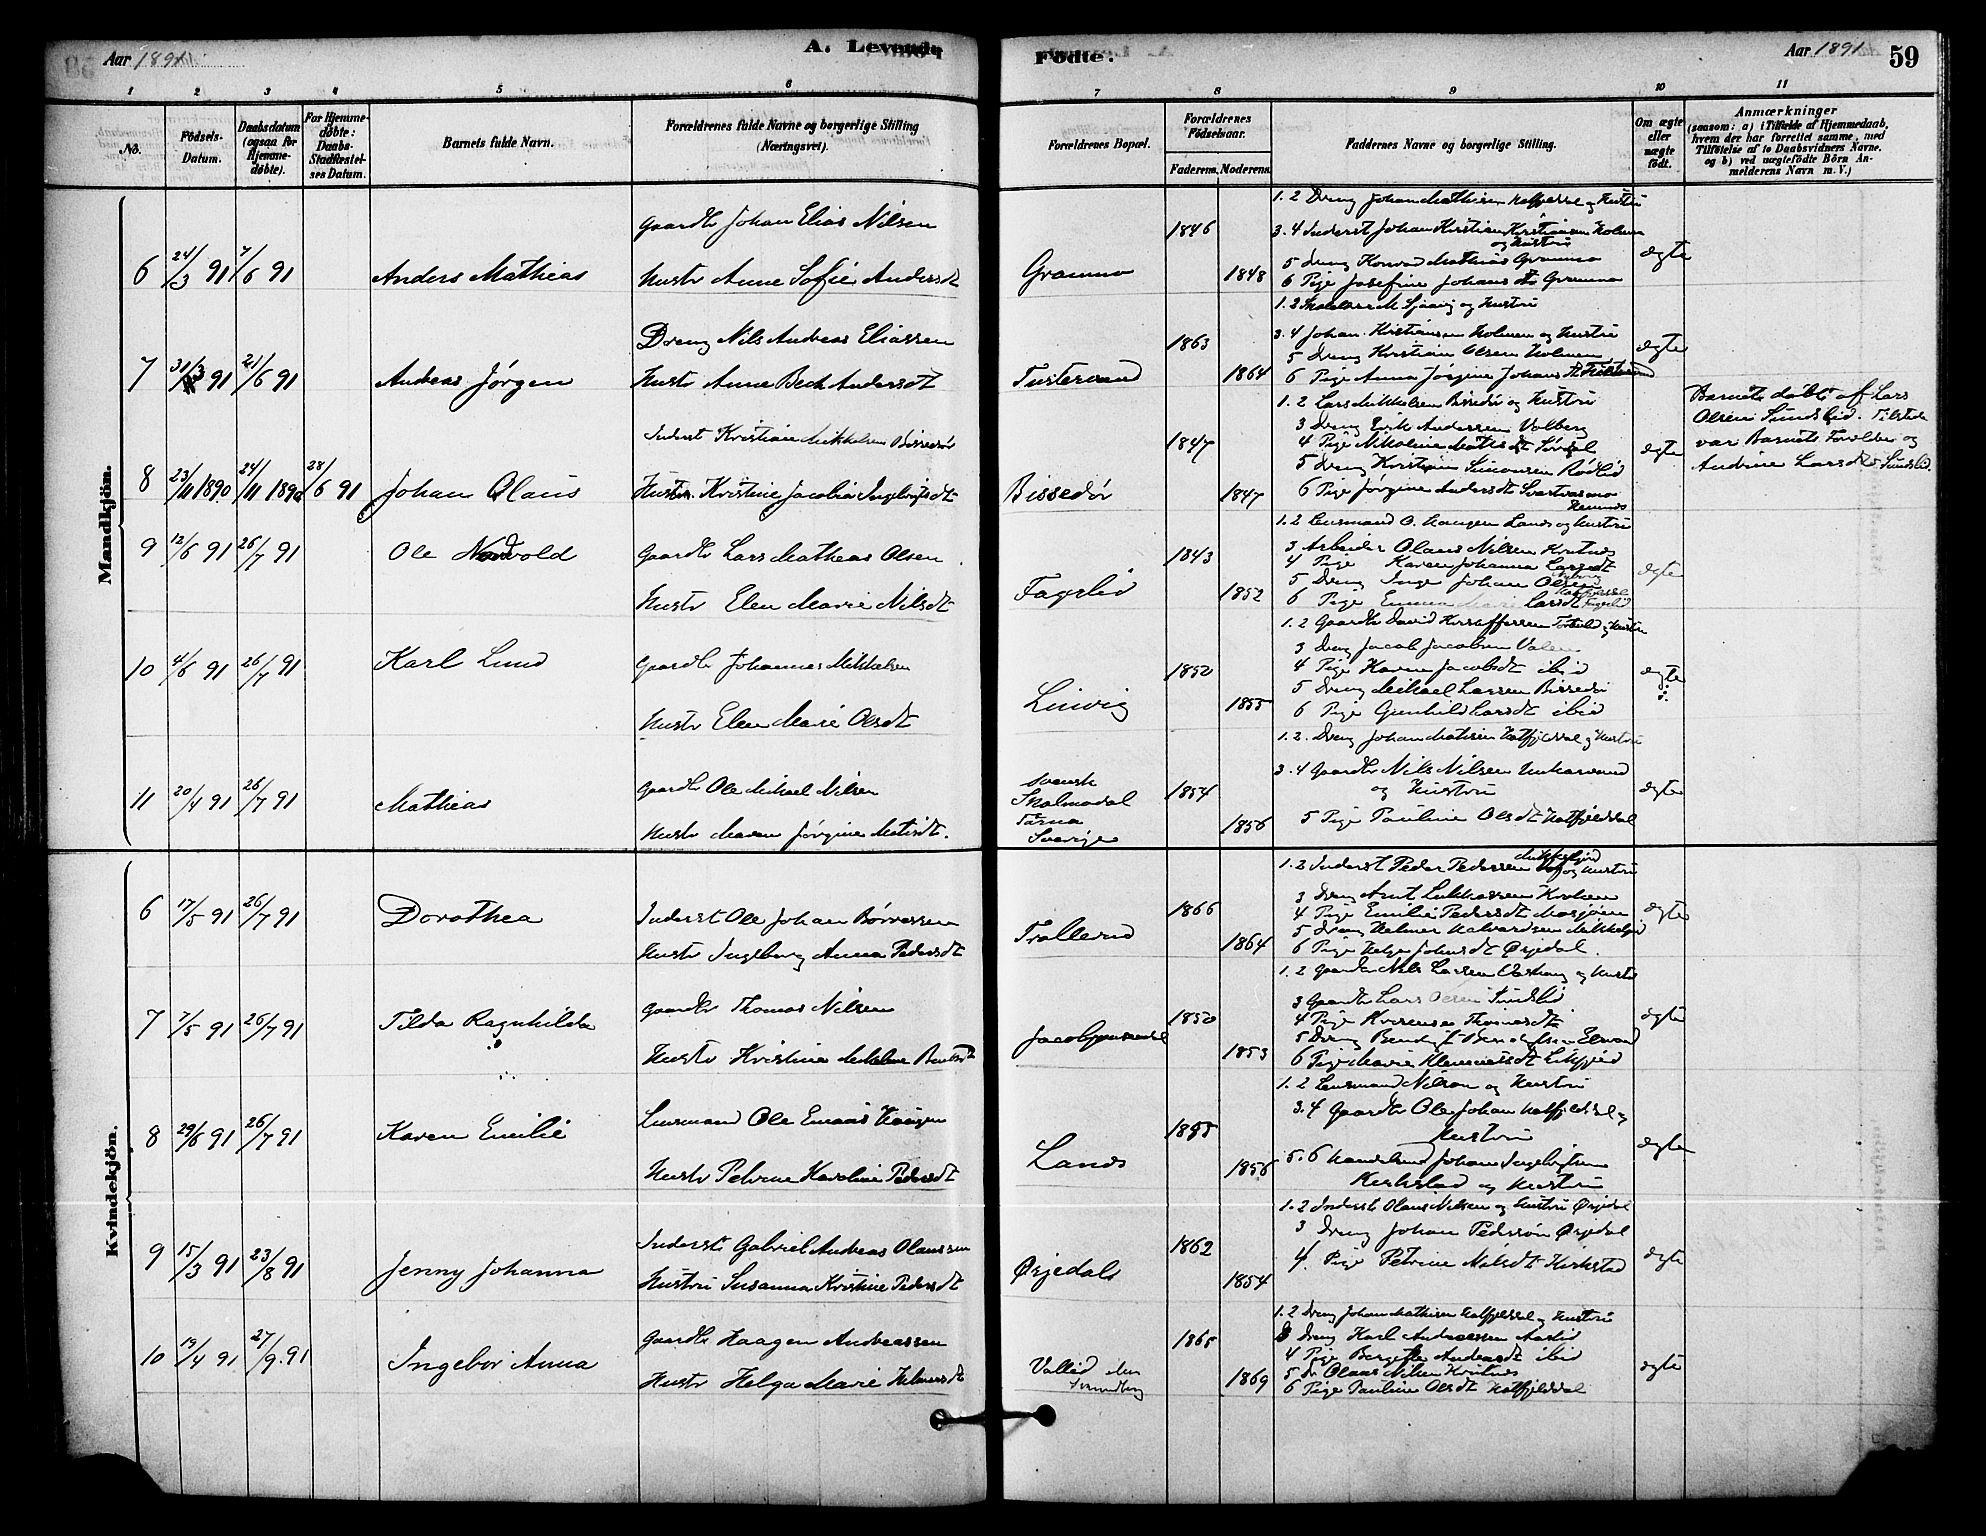 Aar 1891
A. Levende
Fødte.
Aar 1891
59
1 2 3 4 5 6 7 8 9 10 11
No.
Fødsels-Datum.
Daabsdatum (ogsaa for Hjemme-døbte).
For Hjemme-døbte: Daabs-Stadfæstel-ses Datum.
Barnets fulde Navn.
Forældrenes fulde Navne og borgerlige Stilling (Næringsvei).
Forældrenes Bopæl.
Forældrenes Fødselsaar.
Faderens. Moderens.
Faddernes Navne og borgerlige Stilling.
Om ægte eller uægte født.
Anmærkninger
(saasom: a) i Tilfælde af Hjemmedaab, hvem der har forrettet samme, med Tilføielse af to Daabsvidners Navne, og b) ved uægtefødte Børn Anmelderens Navn m. V.)
Mandkjön.
6 24/3 91 7/6 91 Anders Mathias
Gaardbr Johan Elias Nilsen
Hustr Anne Sofie Andersdt
Gramno 1846 1848
1.2 Dreng Johan Mathisen Hatfjeldal og Hustru
3.4 Inderst Johan Kristian Kristiansen Holmen
og Hustru
5 Dreng Konrad Mathias Gramno
6 Pige Josefine Johansdt Gramno
ægte
7 31/3 91 21/6 91 Andreas Jørgen
Dreng Nils Andreas Eliassen
Hustr Anne Beck Andersdt
Tustervand 1863 1864
1.2 Sjaavig og Hustru
3.4 Johan Kristiansen Holmen og Hustru
5 Dreng Kristian Olsen Holmen
6 Pige Anna Jørgine Johansdt
ægte
8 23/11 1890 24/11 1890 28/6 91 Johan Olaus
Inderst Kristian Mikkelsen Bissedør
Hustr. Kristine Jacobia Ingebrigtsdt
Bissedør 1847 1847
1.2 Lars Mikkelsen Bissedør og Hustru
3 Dreng Erik Andersen Volberg
4 Pige Nikoline Matisdt Sørdal
5 Dreng Kristian Simonsen Rødlid
6 Pige Jørgine Andersdt Svartvasmo
Hemnes
ægte
Barnet døbt af Lars
Olsen Sundslid. Tilstede
var Barnets Forældre og
Andrine Larsdt Sundslid.
9 12/6 91 26/7 91 Ole Nordvold
Gaardbr Lars Mathias Olsen
Hustr Elen Marie Nilsdt
Fagerlid 1843 1852
1.2 Lensmand O. Haugen Lands og Hustru
3 Arbeider Olaus Nilsen Kvitnes
4 Pige Karen Johanna Larsdt
5 Dreng Inge Johan Olsen
6 Pige Emma Marie Larsdt Fagerlid
ægte
10 4/6 91 26/7 91 Karl Lund
Gaardbr Johannes Mikkelsen
Hustr Elen Marie Olsdt
Linvig 1850 1855
1.2 Gaardbr David Kristoffersen og Hustru
3 Dreng Jacob Jacobsen Valen
4 Pige Karen Jacobsdt ibid
5 Dreng Mikael Larsen Bissedør
6 Pige Gunhild Larsdt ibid
ægte
11 20/4 91 26/7 91 Mathias
Gaardbr Ole Mikael Nilsen
Hustr Maren Jørgine Matisdt.
Svensk
Skalmodal
Tärna
Sverige
1854 1856
1.2. Dreng Johan Matisen Hatfjeldal og Hustru
3.4 Gaardbr Nils Nilsen Unkervand
og Hustru
5 Pige Pauline Olsdt Hatfjelddal
ægte
Kvindekjön.
6 17/5 91 26/7 91 Dorothea
Inderst Ole Johan Børresen
Hustr Ingeborg Anna Pedersdt
Trollerud 1866 1864
1.2 Inderst Peder Pedersen og Hustru
3 Dreng Arnt Lukkassen Kroken
4 Pige Emilie Pedersdt Mosjøen
5 Dreng Helmer Halvardsen
6 Pige Helga Johansdt Ørjedal.
ægte
7 7/5 91 26/7 91 Tilda Ragnhilda
Gaardbr Thomas Nilsen
Hustr Kristine
1850 1853
1.2 Gaardbr Nils Larsen og Hustru
3 Gaardbr Lars Olsen Sundslid
4 Pige Thomasdt
5 Dreng
6 Pige Marie Klemmetsdt
ægte
8 29/6 91 26/7 91 Karen Emilie
Lensmand Ole Haugen
Hustr Petrine Karoline Pedersdt
Lands 1855 1856
1.2 Lensmand Nilson og Hustru
3.4 Gaardbr Ole Johan Hatfjelddal og
Hustru
5.6 Johan
Kirkstad og Hustru
ægte
9 15/3 91 23/8 91 Jenny Johanna
Inderst Gabriel Andreas Olaussen
Hustru Susanna Kristine Pedersdt
Ørjedals 1862 1854
1.2 Inderst Olaus Nilsen og Hustru Ørjedal
3 Dreng Johan Pedersøn Ørjedal
4. Pige Petrine Nilsdt Kirkstad
ægte
10 19/4 91 27/9 91 Ingebor Anna
Gaardbr Haagen Andreassen
Hustr Helga Marie Helmersdt
Vallid 1865 1869
1.2 Dreng Johan Mathisen Hatfjelddal og Hustru
3 Dreng Karl Andreassen
4 Pige Andreasdt ibid
5 Dr Olaus Nilsen Kvitnes
6 Pige Pauline Olsdt Hatfjelddal
ægte